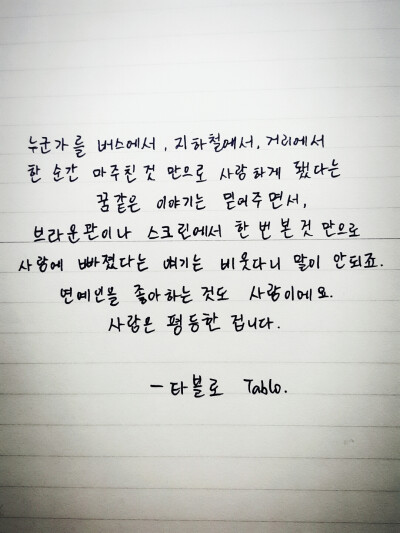 누군가를 버스에서, 지하철에서, 거리에서
한 순간 마주친 것 만으로 사랑하게 됐다는
꿈같은 이야기는 믿어주면서,
브라운관이나 스크린에서 한 번 본 것 만으로
사랑에 빠졌다는 얘기는 비웃다니 말이 안되죠.
연예인을 좋아하는 것도 사랑이에요.
사랑은 평등한 겁니다.
- 타블로 Tablo.